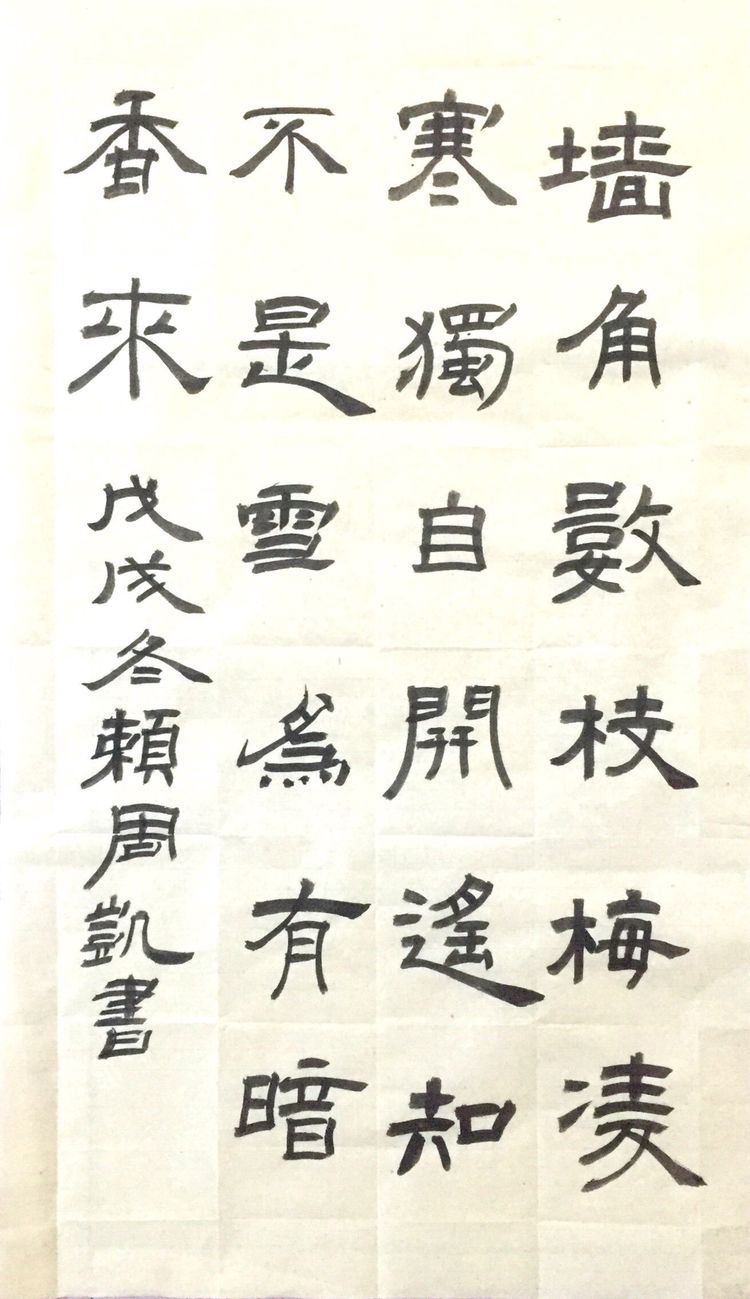 墙角數枝梅凌
寒獨自開遙知
不是雪為有暗
香來
戊戌冬賴周凱書